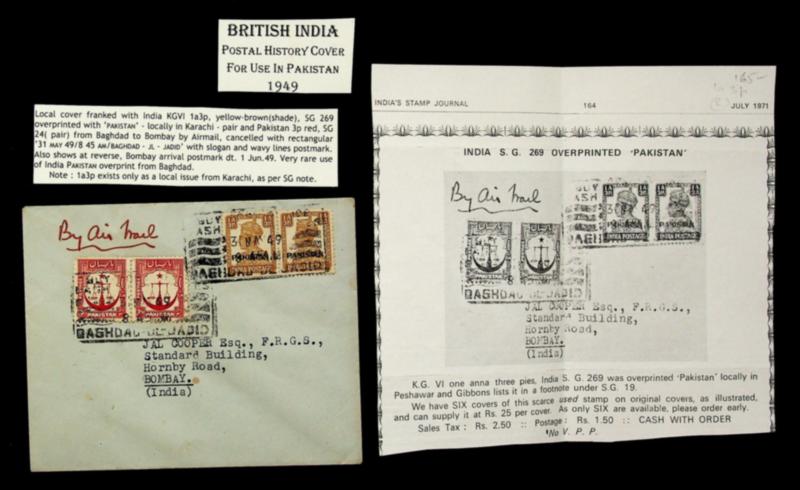 BRITISH INDIA
POSTAL HISTORY COVER
FOR USE IN PAKISTAN
1949
Local cover franked with India KGVI 1a3p, yellow-brown(shade), SG 269
overprinted with 'PAKISTAN' - locally in Karachi - pair and Pakistan 3p red, SG
24( pair) from Baghdad to Bombay by Airmail, cancelled with rectangular
'31 MAY 49/8 45 AM/BAGHDAD - JL - JADID' with slogan and wavy lines postmark.
Also shows at reverse, Bombay arrival postmark dt. 1 Jun.49. Very rare use
of India PAKISTAN overprint from Baghdad.
Note : 1a3p exists only as a local issue from Karachi, as per SG note.
By Air Mail
PAKISTAN PAKISTAN
INDIA POSTAGE
PAKISTAN PAKISTAN
BAGHDAD
JAL COOPER Esq., F.R.G.S.,
Standard Building,
Hornby Road,
BOMBAY.
(India)
165-
INDIA'S STAMP JOURNAL 164 JULY 1971
INDIA S. G. 269 OVERPRINTED 'PAKISTAN'
By Air Mail
PAKISTAN PAKISTAN
INDIA POSTAGE INDIA POSTAGE
BAGHDAD
JAL COOPER Esq., F.R.G.S.,
Standard Building,
Hornby Road,
BOMBAY.
(India)
K.G. VI one anna three pies, India S. G. 269 was overprinted 'Pakistan' locally in
Peshawar and Gibbons lists it in a footnote under S.G. 19.
We have SIX covers of this scarce used stamp on original covers, as illustrated,
and can supply it at Rs. 25 per cover. As only SIX are available, please order early.
Sales Tax : Rs. 2.50 :: Postage : Rs. 1.50 :: CASH WITH ORDER
No V. P. P.